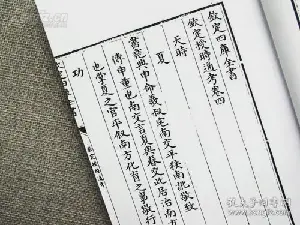 欽定四庫全書
欽定授時通考卷四
天時
夏
書堯典申命羲叔宅南交平秩南訛敬致
傳申重也南交言夏與春交此居治南方
也掌夏之官平叙南方化育之事敬行
功